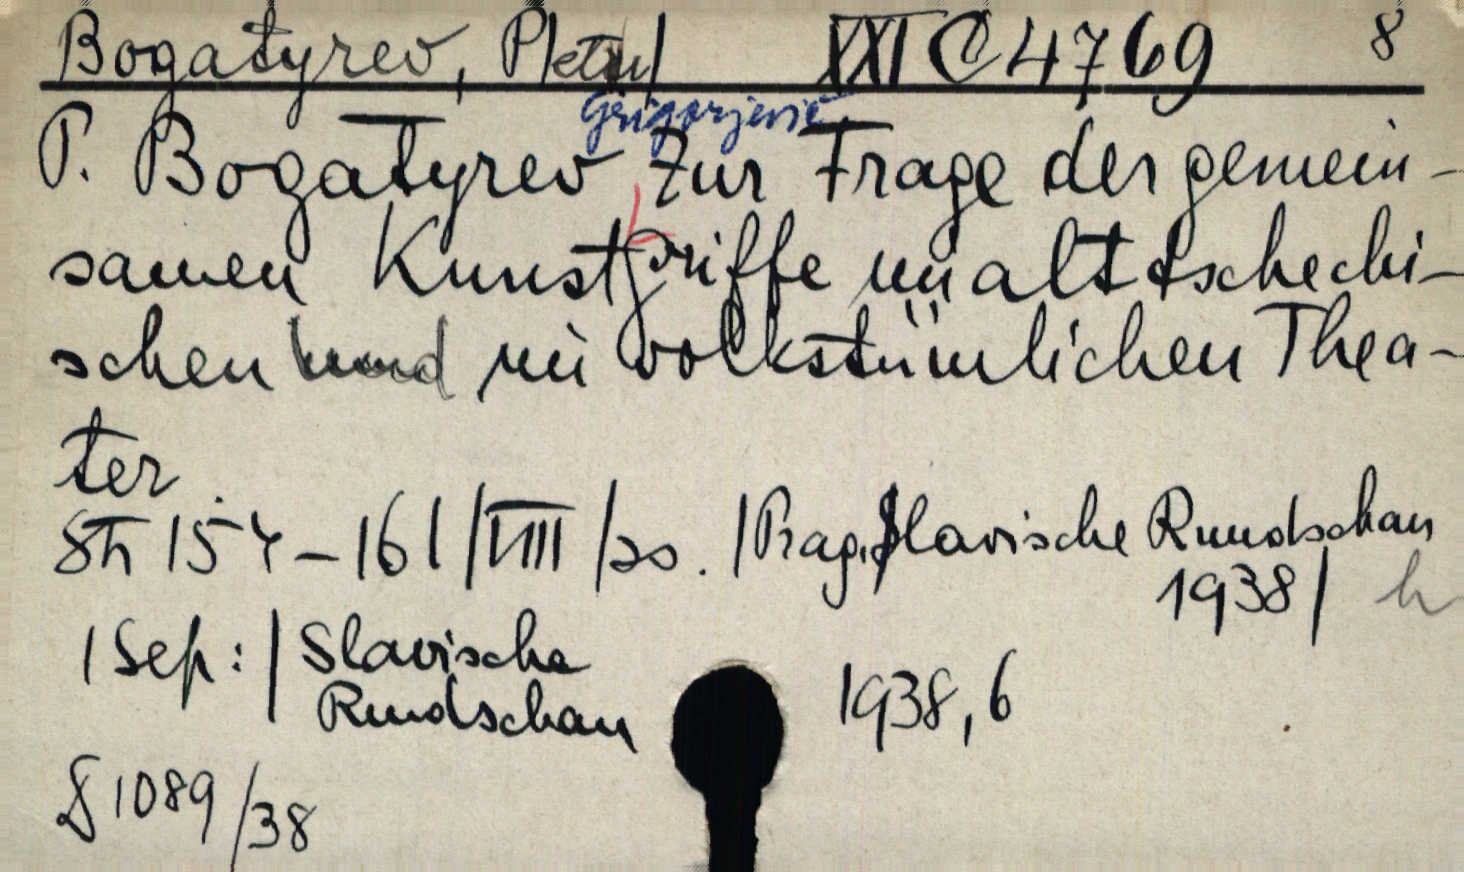 Bogatyrev, P/etr/ XXI C 4769 8
Grigorjevič
P. Bogatyrev Zur Frage der gemein-
samen Kunstgriffe im alttschechi-
schen und im volkstümlichen Thea-
ter.
154-161 /VIII/ so. /Prag, Slavische Rundschau
1938/ h
/Sep:/ Slavische
Rundschau 1938, 6
1089/38